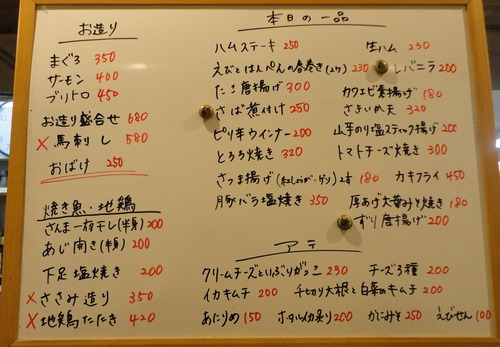 お造り
まぐろ 350
サーモン 400
ブリトロ 450
お造り盛合せ 680
× 馬刺し 580
おばけ 250
焼き魚・地鶏
さんま一夜干し(半身) 200
あじ開き(半身) 200
下足塩焼き 200
× ささみ造り 350
× 地鶏たたき 420
本日の一品
ハムステーキ 250
えびとはんぺんの春巻き(2ケ) 230
たこ唐揚げ 300
さば煮付け 250
ピリ辛ウインナー 200
とろろ焼き 320
さつま揚げ(紅しょうが・ゲソ) 2本 180
豚バラ塩焼き 350
生ハム 230
レバニラ 200
カワエビ素揚げ 180
きょいめ天 320
山芋のり塩スティック揚げ 200
トマトチーズ焼き 300
カキフライ 450
厚あげ大葉みそ焼き 180
ずり唐揚げ 200
アテ
クリームチーズといぶりがっこ 230 チーズ3種 200
イカキムチ 200 千切り大根と白菜のキムチ 200
あにりめ 150 ホタルイカ炙り 200 かにみそ 250 えびせん 100